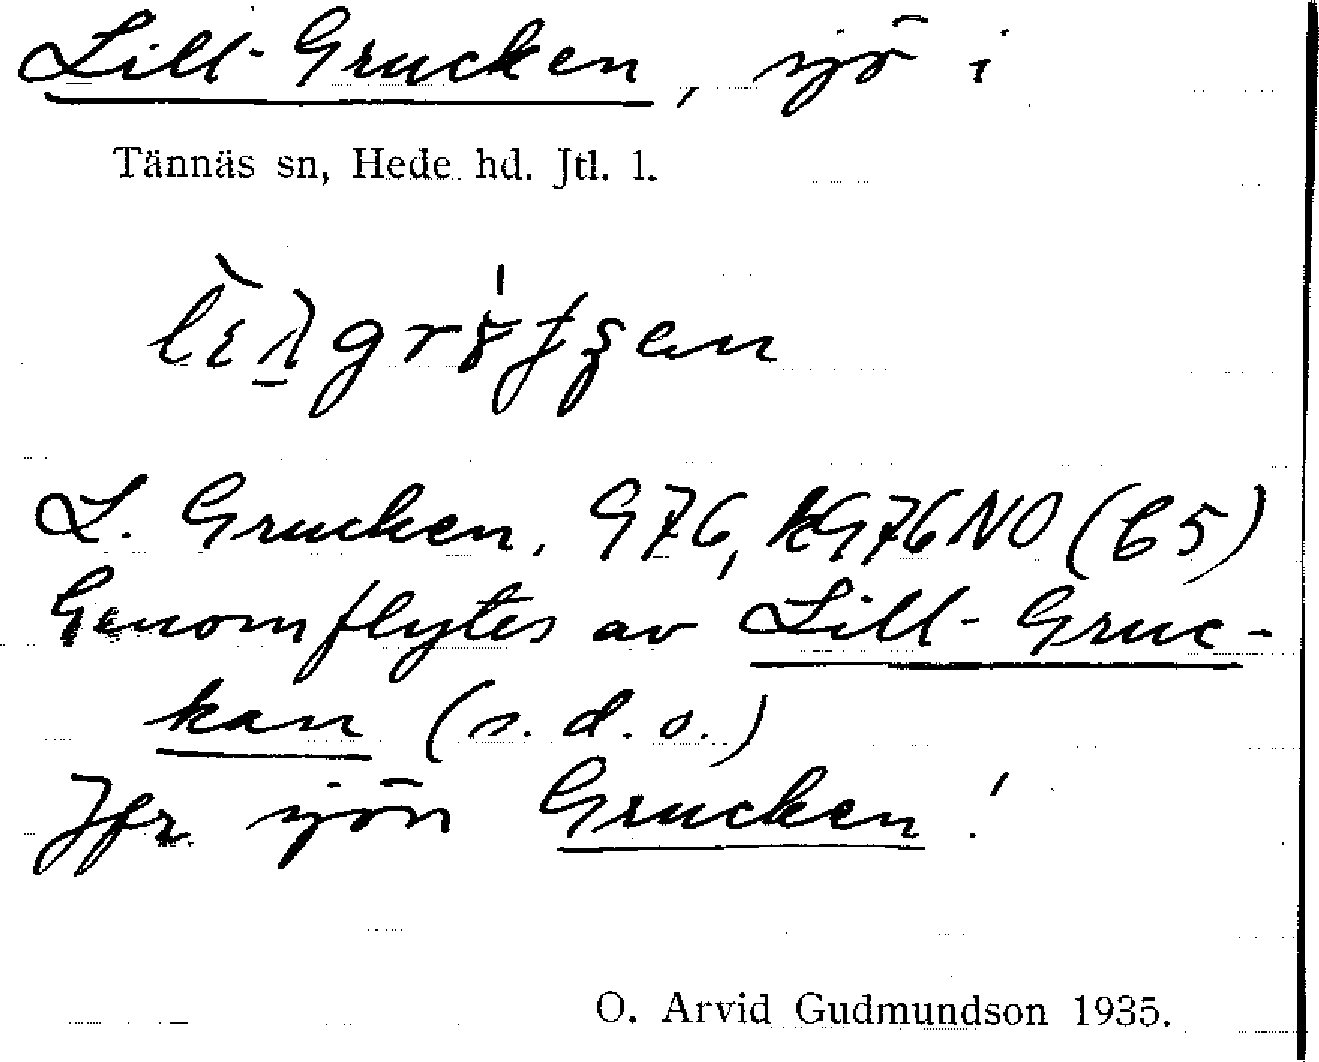 Lill-Grucken, sjö i
Tännäs sn, Hede hd. Jtl. 1.
L. Grucken, G76, kG76NO (b5)
Genomflytes av Lill-Gruc-
kan (s.d.o.)
Jfr sjön Grucken!
O. Arvid Gudmundson 1935.